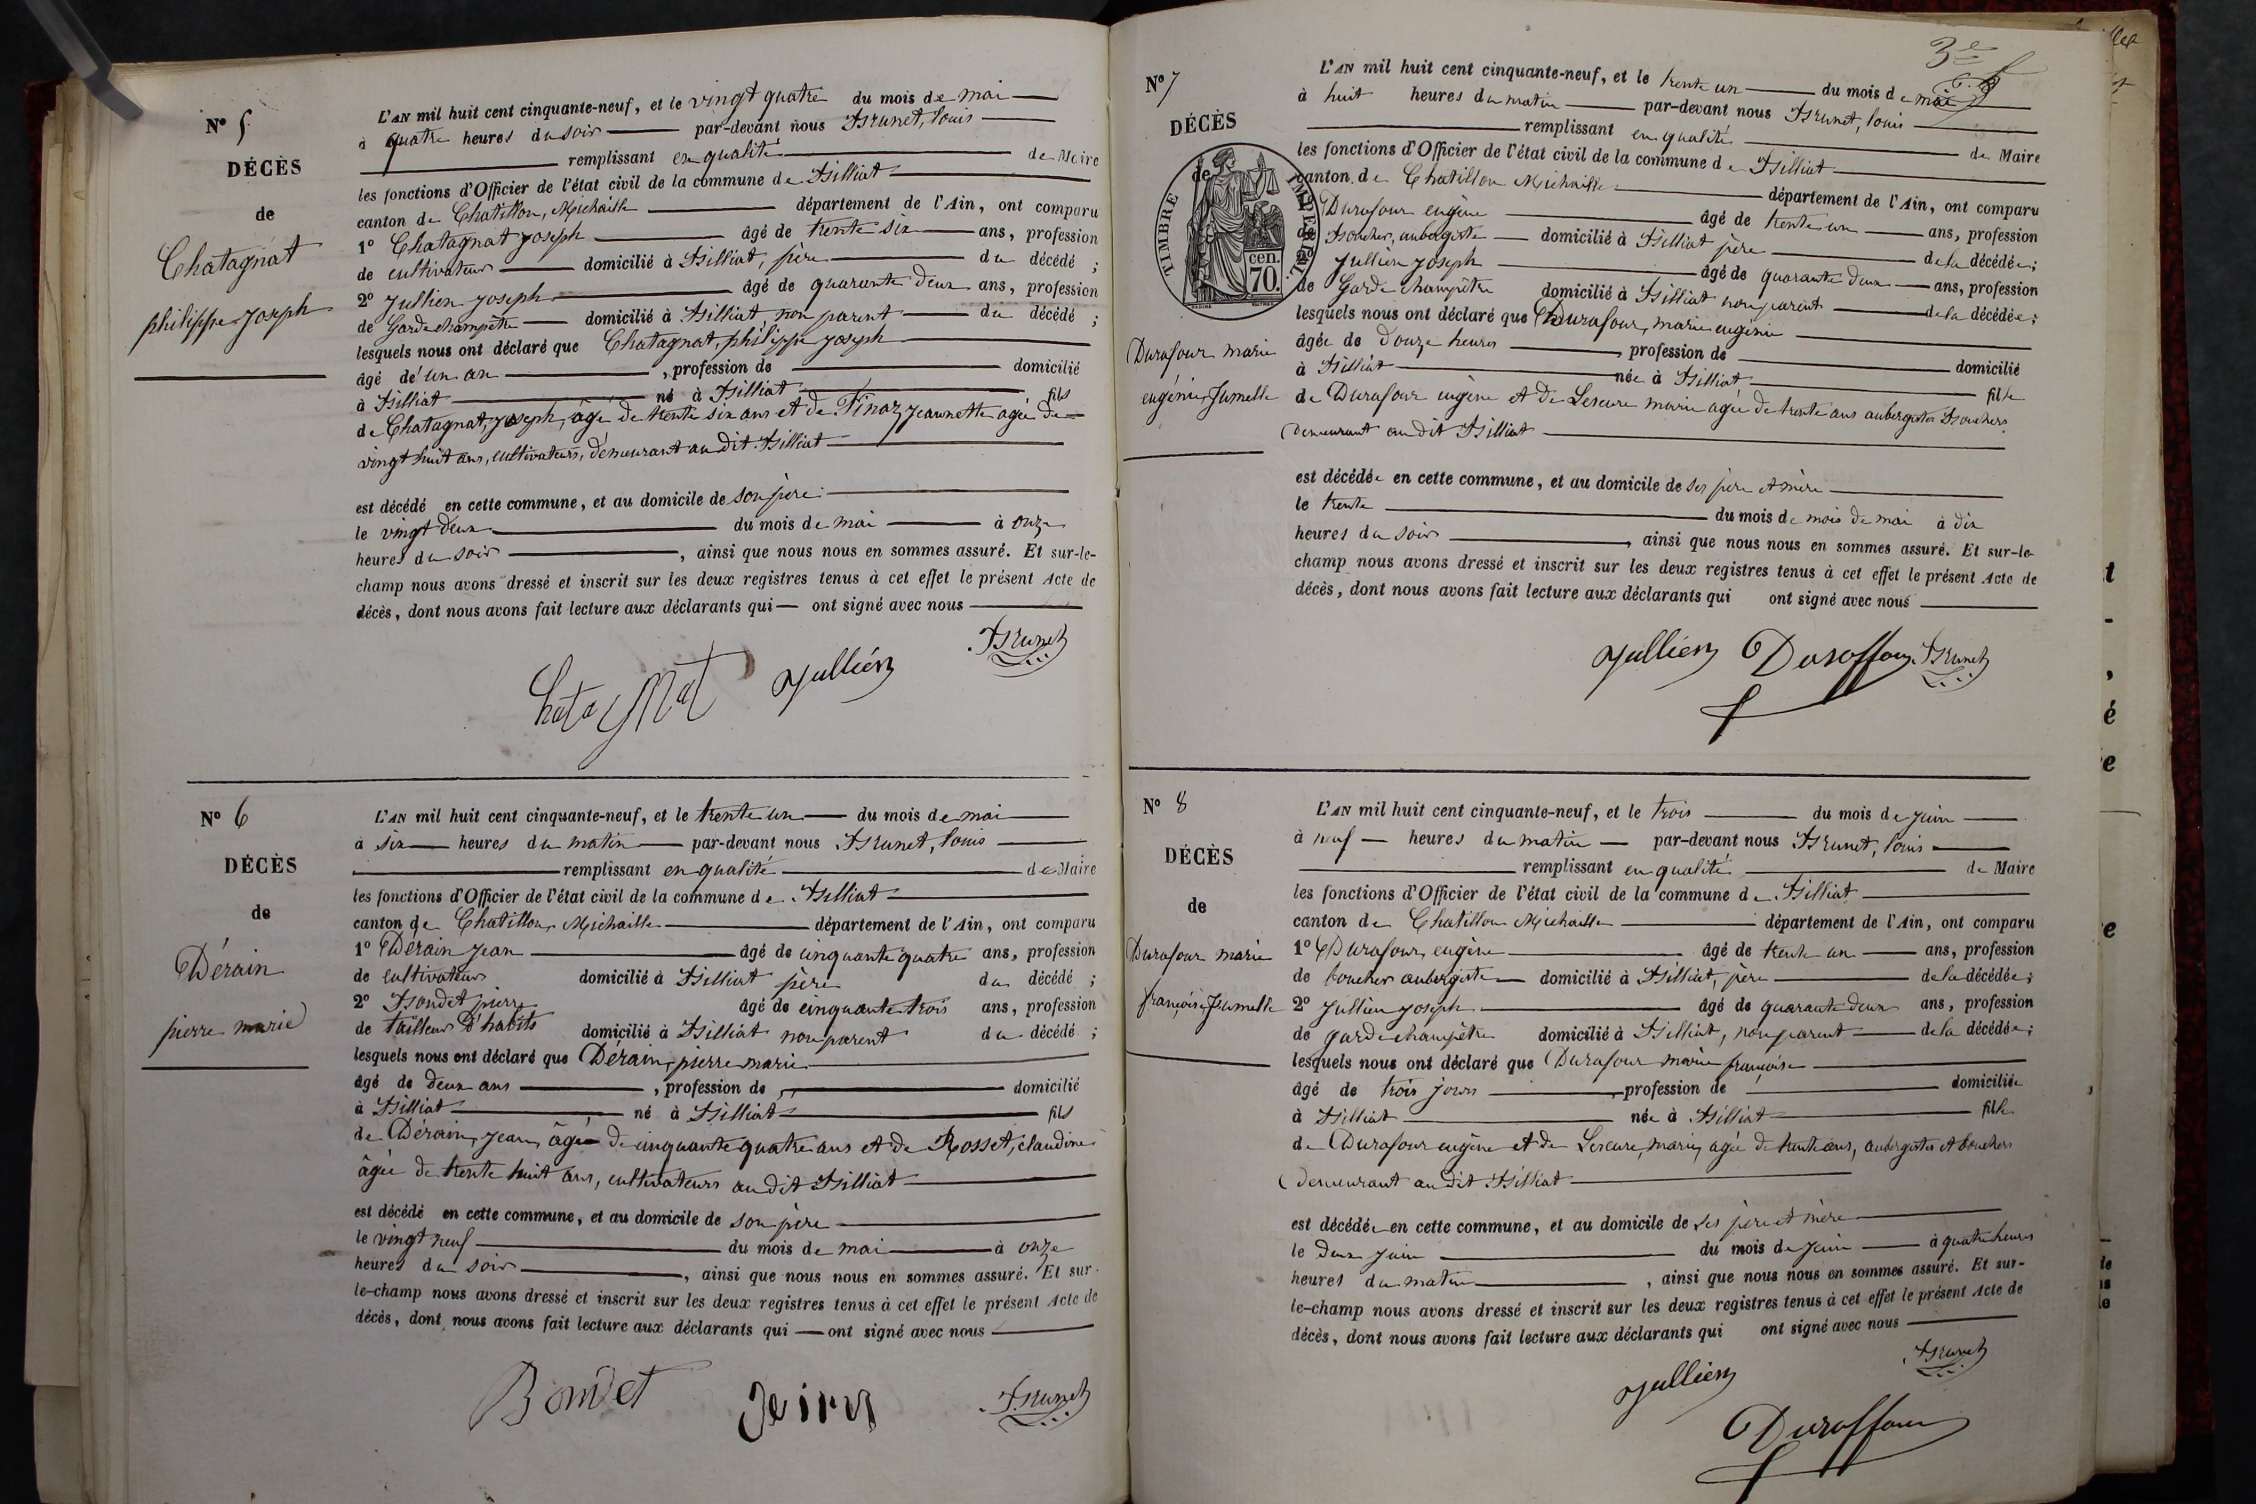 N° 5
DÉCÈS
de
Chatagnat
philippe Joseph
L'AN mil huit cent cinquante-neuf, et le vingt quatre du mois de mai
à quatre heures du soir par-devant nous Brunet, louis
remplissant en qualité de Maire
les fonctions d'Officier de l'état civil de la commune de Billiat
canton de Chatillon, Michaille département de l'Ain, ont comparu
1° Chatagnat Joseph âgé de trente six ans, profession
de cultivateur domicilié à Billiat, père du décédé ;
2° Jullien Joseph âgé de quarante deux ans, profession
de Garde champêtre domicilié à Billiat non parent du décédé ;
lesquels nous ont déclaré que Chatagnat, philippe Joseph
âgé de un an , profession de domicilié
à Billiat né à Billiat fils
de Chatagnat, Joseph, âgé de trente six ans et de Finaz Jeannette agée de
vingt huit ans, cultivateurs, demeurant au dit Billiat
est décédé en cette commune, et au domicile de son père.
le vingt deux du mois de mai à onze
heures du soir , ainsi que nous nous en sommes assuré. Et sur-le-
champ nous avons dressé et inscrit sur les deux registres tenus à cet effet le présent Acte de
décès, dont nous avons fait lecture aux déclarants qui ont signé avec nous
Brunet
Chatagnat Jullien
N° 6
DÉCÈS
de
Dérain
pierre marie
L'AN mil huit cent cinquante-neuf, et le trente un du mois de mai
à six heures du matin par-devant nous Brunet, louis
remplissant en qualité de Maire
les fonctions d'Officier de l'état civil de la commune de Billiat
canton de Chatillon, Michaille département de l'Ain, ont comparu
1° Dérain Jean âgé de cinquante quatre ans, profession
de cultivateur domicilié à Billiat père du décédé ;
2° Bondet pierre âgé de cinquante trois ans, profession
de tailleur d'habits domicilié à Billiat non parent du décédé ;
lesquels nous ont déclaré que Dérain, pierre marie
âgé de deux ans , profession de domicilié
à Billiat né à Billiat fils
de Dérain, Jean, âgé de cinquante quatre ans et de Rosset, claudine
âgée de trente huit ans, cultivateurs au dit Billiat
est décédé en cette commune, et au domicile de son père
le vingt neuf du mois de mai à onze
heures du soir , ainsi que nous nous en sommes assuré. Et sur-
le-champ nous avons dressé et inscrit sur les deux registres tenus à cet effet le présent Acte de
décès, dont nous avons fait lecture aux déclarants qui ont signé avec nous
Bondet Brunet
3e
N° 7
DÉCÈS
de
TIMBRE IMPERIAL
cen.
70.
Durafour marie
eugénie Jumelle
L'AN mil huit cent cinquante-neuf, et le trente un du mois de mai
à huit heures du matin par-devant nous Brunet, louis
remplissant en qualité de Maire
les fonctions d'Officier de l'état civil de la commune de Billiat
canton de Chatillon Michaille département de l'Ain, ont comparu
Durafour eugène âgé de trente un ans, profession
de Boucher, aubergiste domicilié à Billiat père de la décédée ;
2° Jullien Joseph âgé de quarante deux ans, profession
de Garde champêtre domicilié à Billiat non parent de la décédée ;
lesquels nous ont déclaré que Durafour, marie eugénie
âgée de douze heures , profession de domicilié
à Billiat née à Billiat fille
de Durafour eugène et de Lescure marie agée de trente ans aubergistes Bouchers
demeurant au dit Billiat
est décédée en cette commune, et au domicile de ses père et mère
le trente du mois de mois de mai à dix
heures du soir , ainsi que nous nous en sommes assuré. Et sur-le-
champ nous avons dressé et inscrit sur les deux registres tenus à cet effet le présent Acte de
décès, dont nous avons fait lecture aux déclarants qui ont signé avec nous
Jullien Duraffour Brunet
N° 8
DÉCÈS
de
Durafour marie
françoise Jumelle
L'AN mil huit cent cinquante-neuf, et le trois du mois de Juin
à neuf heures du matin par-devant nous Brunet, louis
remplissant en qualité de Maire
les fonctions d'Officier de l'état civil de la commune de Billiat
canton de Chatillon Michaille département de l'Ain, ont comparu
1° Durafour, eugène âgé de trente un ans, profession
de boucher aubergiste domicilié à Billiat, père de la décédée ;
2° Jullien Joseph âgé de quarante deux ans, profession
de garde champêtre domicilié à Billiat, non parent de la décédée ;
lesquels nous ont déclaré que Durafour marie françoise
âgé de trois jours , profession de domiciliée
à Billiat née à Billiat fille
de Durafour eugène et de Lescure, marie, agée de trente ans, aubergistes et bouchers
demeurant au dit Billiat
est décédée en cette commune, et au domicile de ses père et mère
le deux juin du mois de Juin à quatre heures
heures du matin , ainsi que nous nous en sommes assuré. Et sur-
le-champ nous avons dressé et inscrit sur les deux registres tenus à cet effet le présent Acte de
décès, dont nous avons fait lecture aux déclarants qui ont signé avec nous
Jullien Brunet
Duraffour